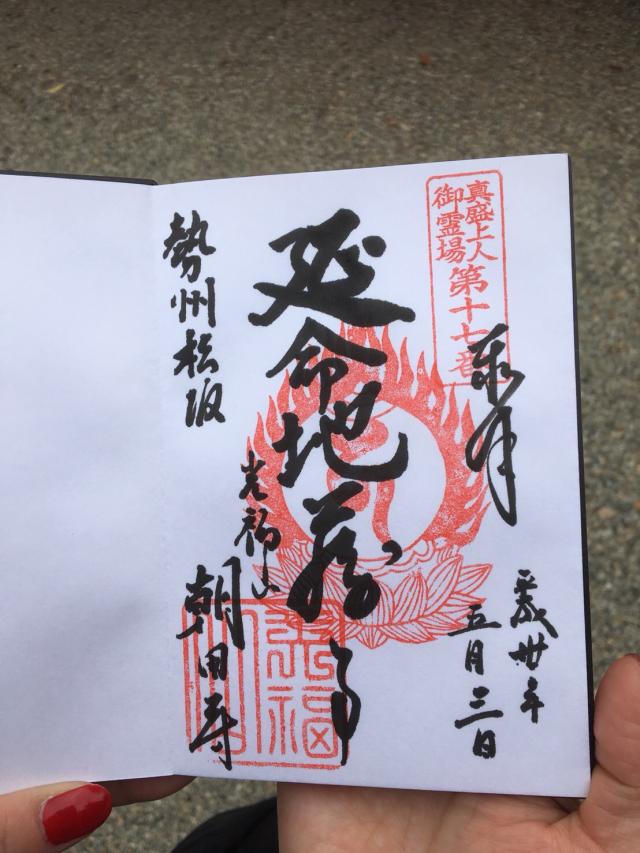 真盛上人
御霊場第十七番
奉拝
平成卅年
五月三日
延命地蔵尊
勢州松阪
光福山
朝田寺